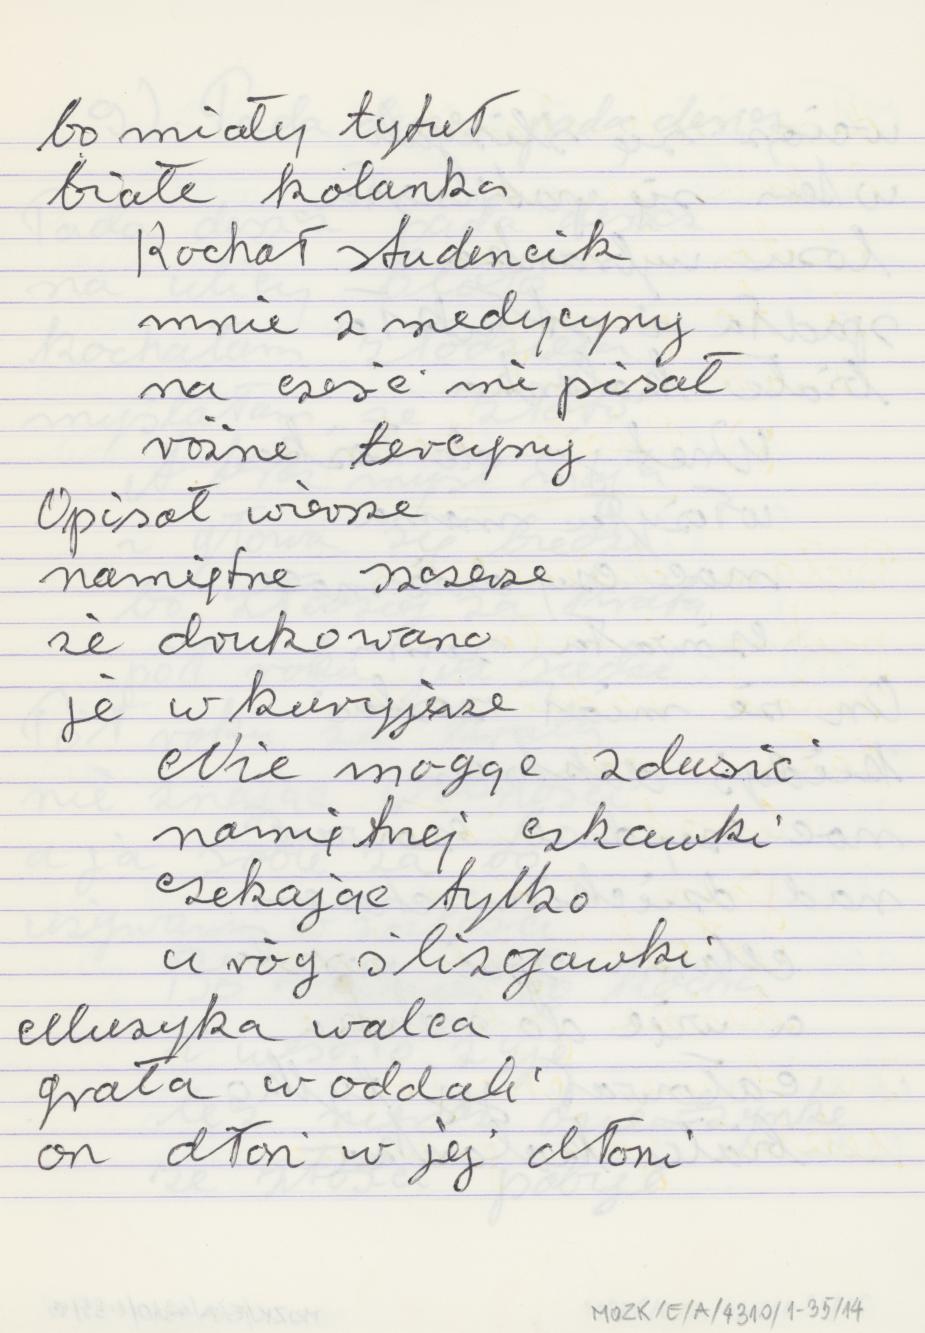 bo miały tytuł
białe kolanka
Kochał studencik
mnie z medycyny
na cześć mi pisał
różne tercyny
Opisał wiersze
namiętne szczerze
że drukowano
je w kuryjerze
Nie mogąc zdusić
namiętnej czkawki
czekając tylko
u róg ślizgawki
Muzyka walca
grała w oddali
on dłoń w jej dłoni
MOZK/E/A/4310/1-35/14